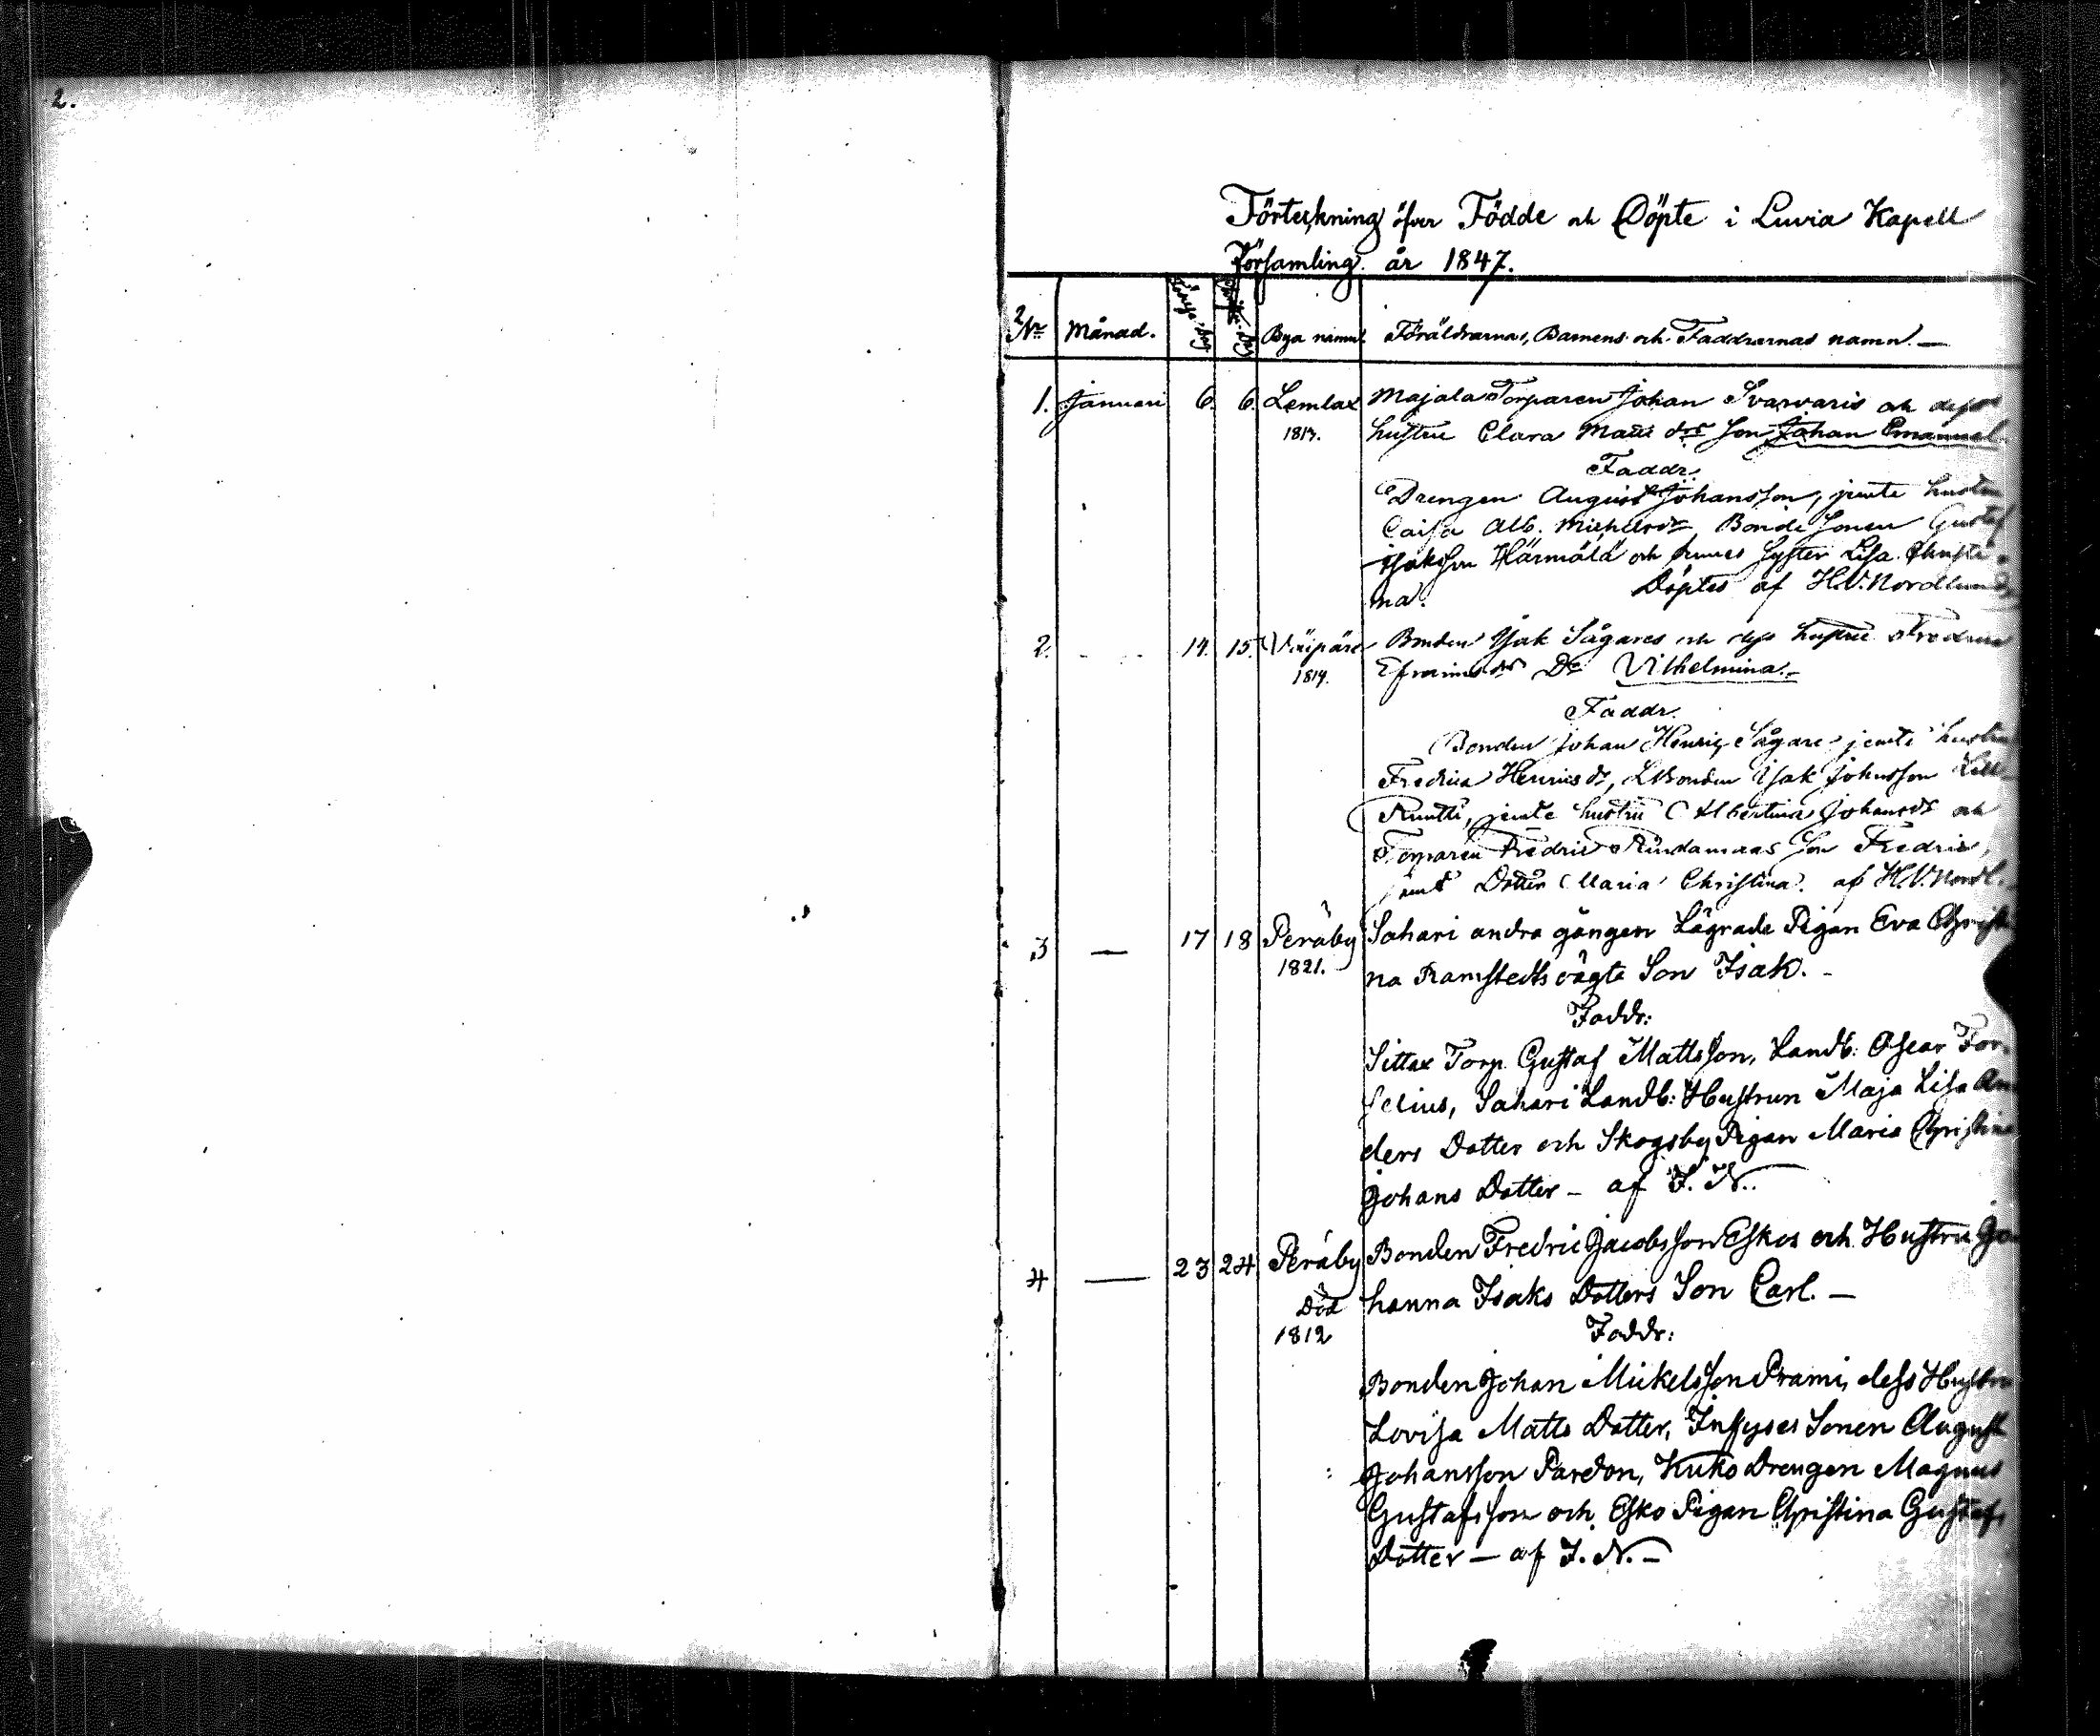 2.
Förteckning öfver Födde och Döpte i Luvia Kapell
Församling år 1847.
No Månad. Födelse-dag Döpelse-dag Bya namn. Föräldrarnas, Barnens och Faddrarnas namn.—
1. Januari 6. 6. Lemlax Majala Torparen Johan Svarvaris och dess
1813. hustru Clara Matts dr Son Johan Emanuel
Faddr.
Drengen August Johansson, jemte hustru
Caisa Alb. Michelsdr, Bonde Sonen Gustaf
Isaksson Härmälä och hnnes Syster Lisa Christi
na. Döptes af H.V. Nordlund
2. 14. 15. Väipäre Bonden Isak Sågares och dess hustru Fredrica
1814. Efraimsdr Dr Vilhelmina.—
Faddr.
Bonden Johan Henric Sågare jemte hustru
Fredrica Henricsdr, LBonden Isak Johansson
Runtti, jemte hustru Albertina Johansdr och
Torparen Fredric Rindamaas Son Fredric,
jemt Dotter Maria Christina. af H.V. Nordl.
3 — 17 18 Peräby Sahari andra gången Lägrade Pigan Eva Christi
1821. na Ramstedts oägta Son Isak.—
Faddr:
Sittax Torp. Gustaf Mattsson, Landb: Oscar For
selius, Sahari Landb: Hustrun Maja Lisa An
ders Dotter och Skogsby Pigan Maria Christina
Johans Dotter— af I. N..
4 — 23 24 Peräby Bonden Fredric Jacobsson Eskos och Hustru Jo
Död hanna Isaks Dotters Son Carl.—
1812 Faddr:
Bonden Johan Mickelsson Prami, dess Hustru
Lovisa Matts Dotter, Inhyses Sonen August
Johansson Pardon, Kuko Drengen Magnus
Gustafsson och Esko Pigan Christina Gustafs
Dotter— af I. N.—